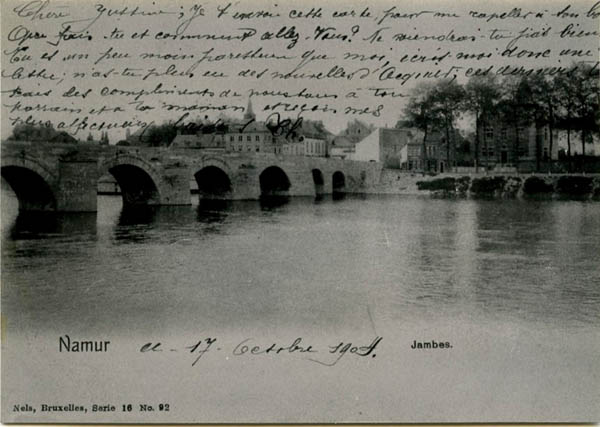 Chère Justine; Je t'envoie cette carte, pour me rappeler à ton
Que fais-tu et comment allez-Vous? Ne viendrais tu pas bien
Tu es un peu moins paresseuse que moi, écris moi donc une
lettre; n'as-tu plus eu des nouvelles d' ces derniers
fais des compliments de nous tous à ton
parrain et à ta maman et reçois mes
plus affectueux
Namur le 17 Octobre 1904. Jambes.
Nels, Bruxelles, Serie 16 No. 92